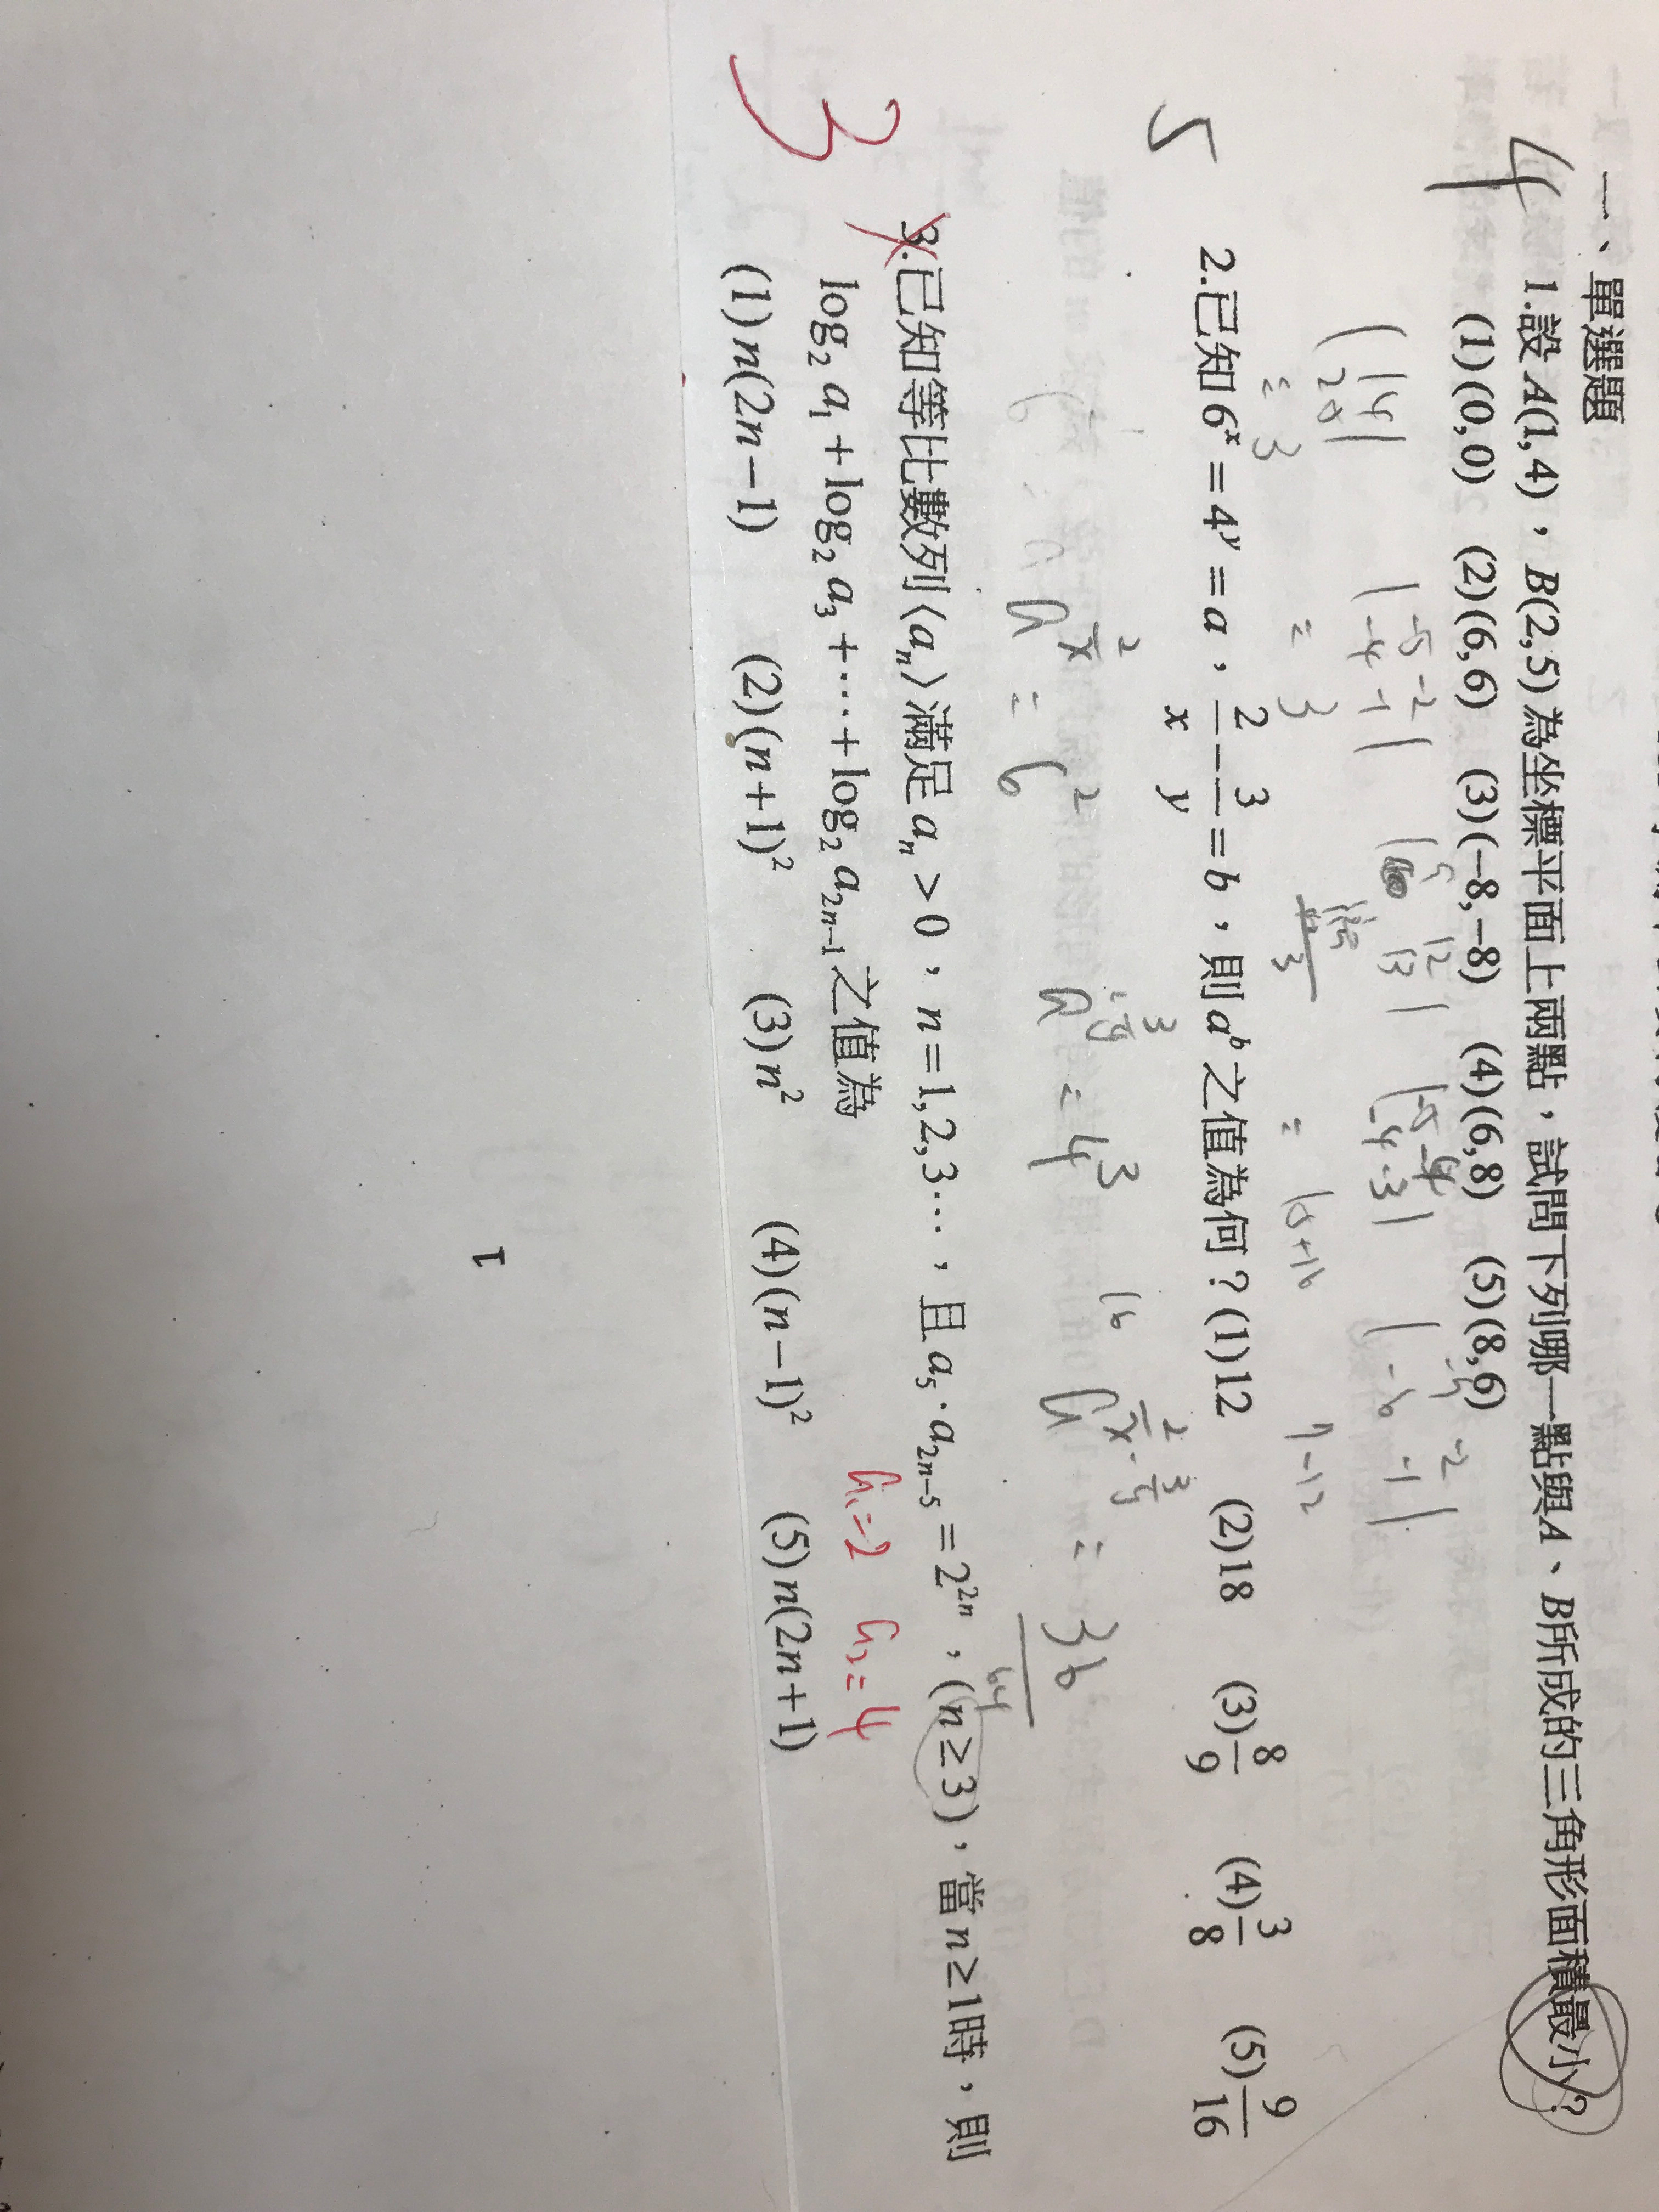 一、單選題
4
1.設 A(1,4)，B(2,5)為坐標平面上兩點，試問下列哪一點與A、B所成的三角形面積最小?
(1)(0,0) (2)(6,6) (3)(−8,−8) (4)(6,8) (5)(8,6)
5
2.已知 6^x = 4^y = a，2/x − 3/y = b，則 a^b 之值為何？(1)12 (2)18 (3)8/9 (4)3/8 (5)9/16
a^(2/x) = 6^2
a^(3/y) = 4^3
36/64
3
3.已知等比數列⟨a_n⟩滿足 a_n > 0，n = 1,2,3⋯，且 a_5 · a_{2n−5} = 2^{2n}，(n ≥ 3)，當 n ≥ 1時，則
log_2 a_1 + log_2 a_3 + ⋯ + log_2 a_{2n−1} 之值為
a_1=2 a_2=4
(1) n(2n−1) (2) (n+1)^2 (3) n^2 (4) (n−1)^2 (5) n(2n+1)
1